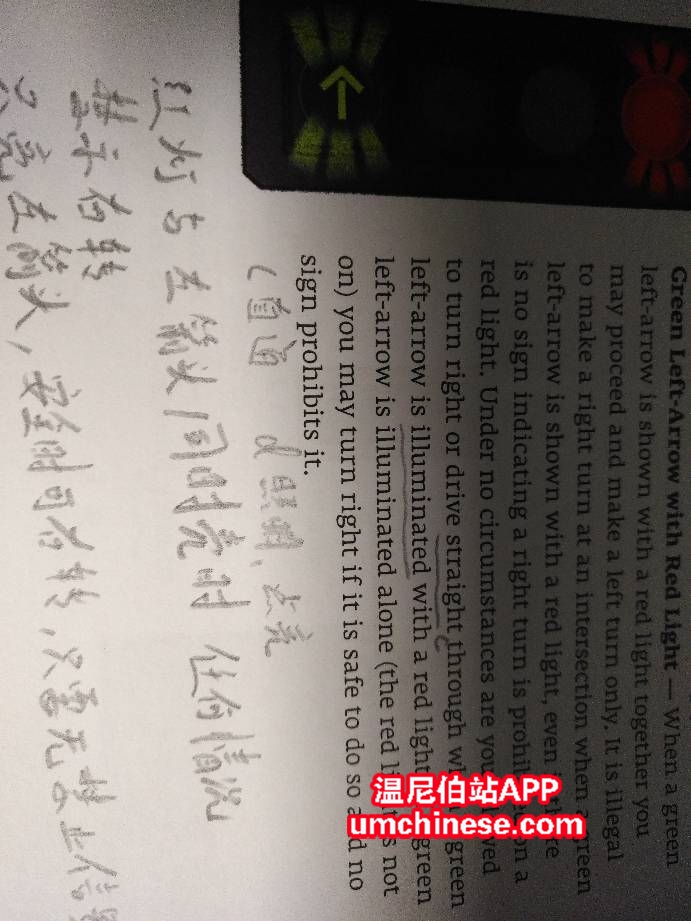 Green Left-Arrow with Red Light — When a green
left-arrow is shown with a red light together you
may proceed and make a left turn only. It is illegal
to make a right turn at an intersection when a green
left-arrow is shown with a red light, even
is no sign indicating a right turn is on a
red light. Under no circumstances are you
to turn right or drive straight through green
left-arrow is illuminated with a red light green
left-arrow is illuminated alone (the red not
on) you may turn right if it is safe to do so and no
sign prohibits it.
(直道 d照明、点亮
红灯与左箭头同时亮时 任何情况
禁示右转
只亮左箭头,安全时可右转,只需无禁止信
温尼伯站APP
umchinese.com